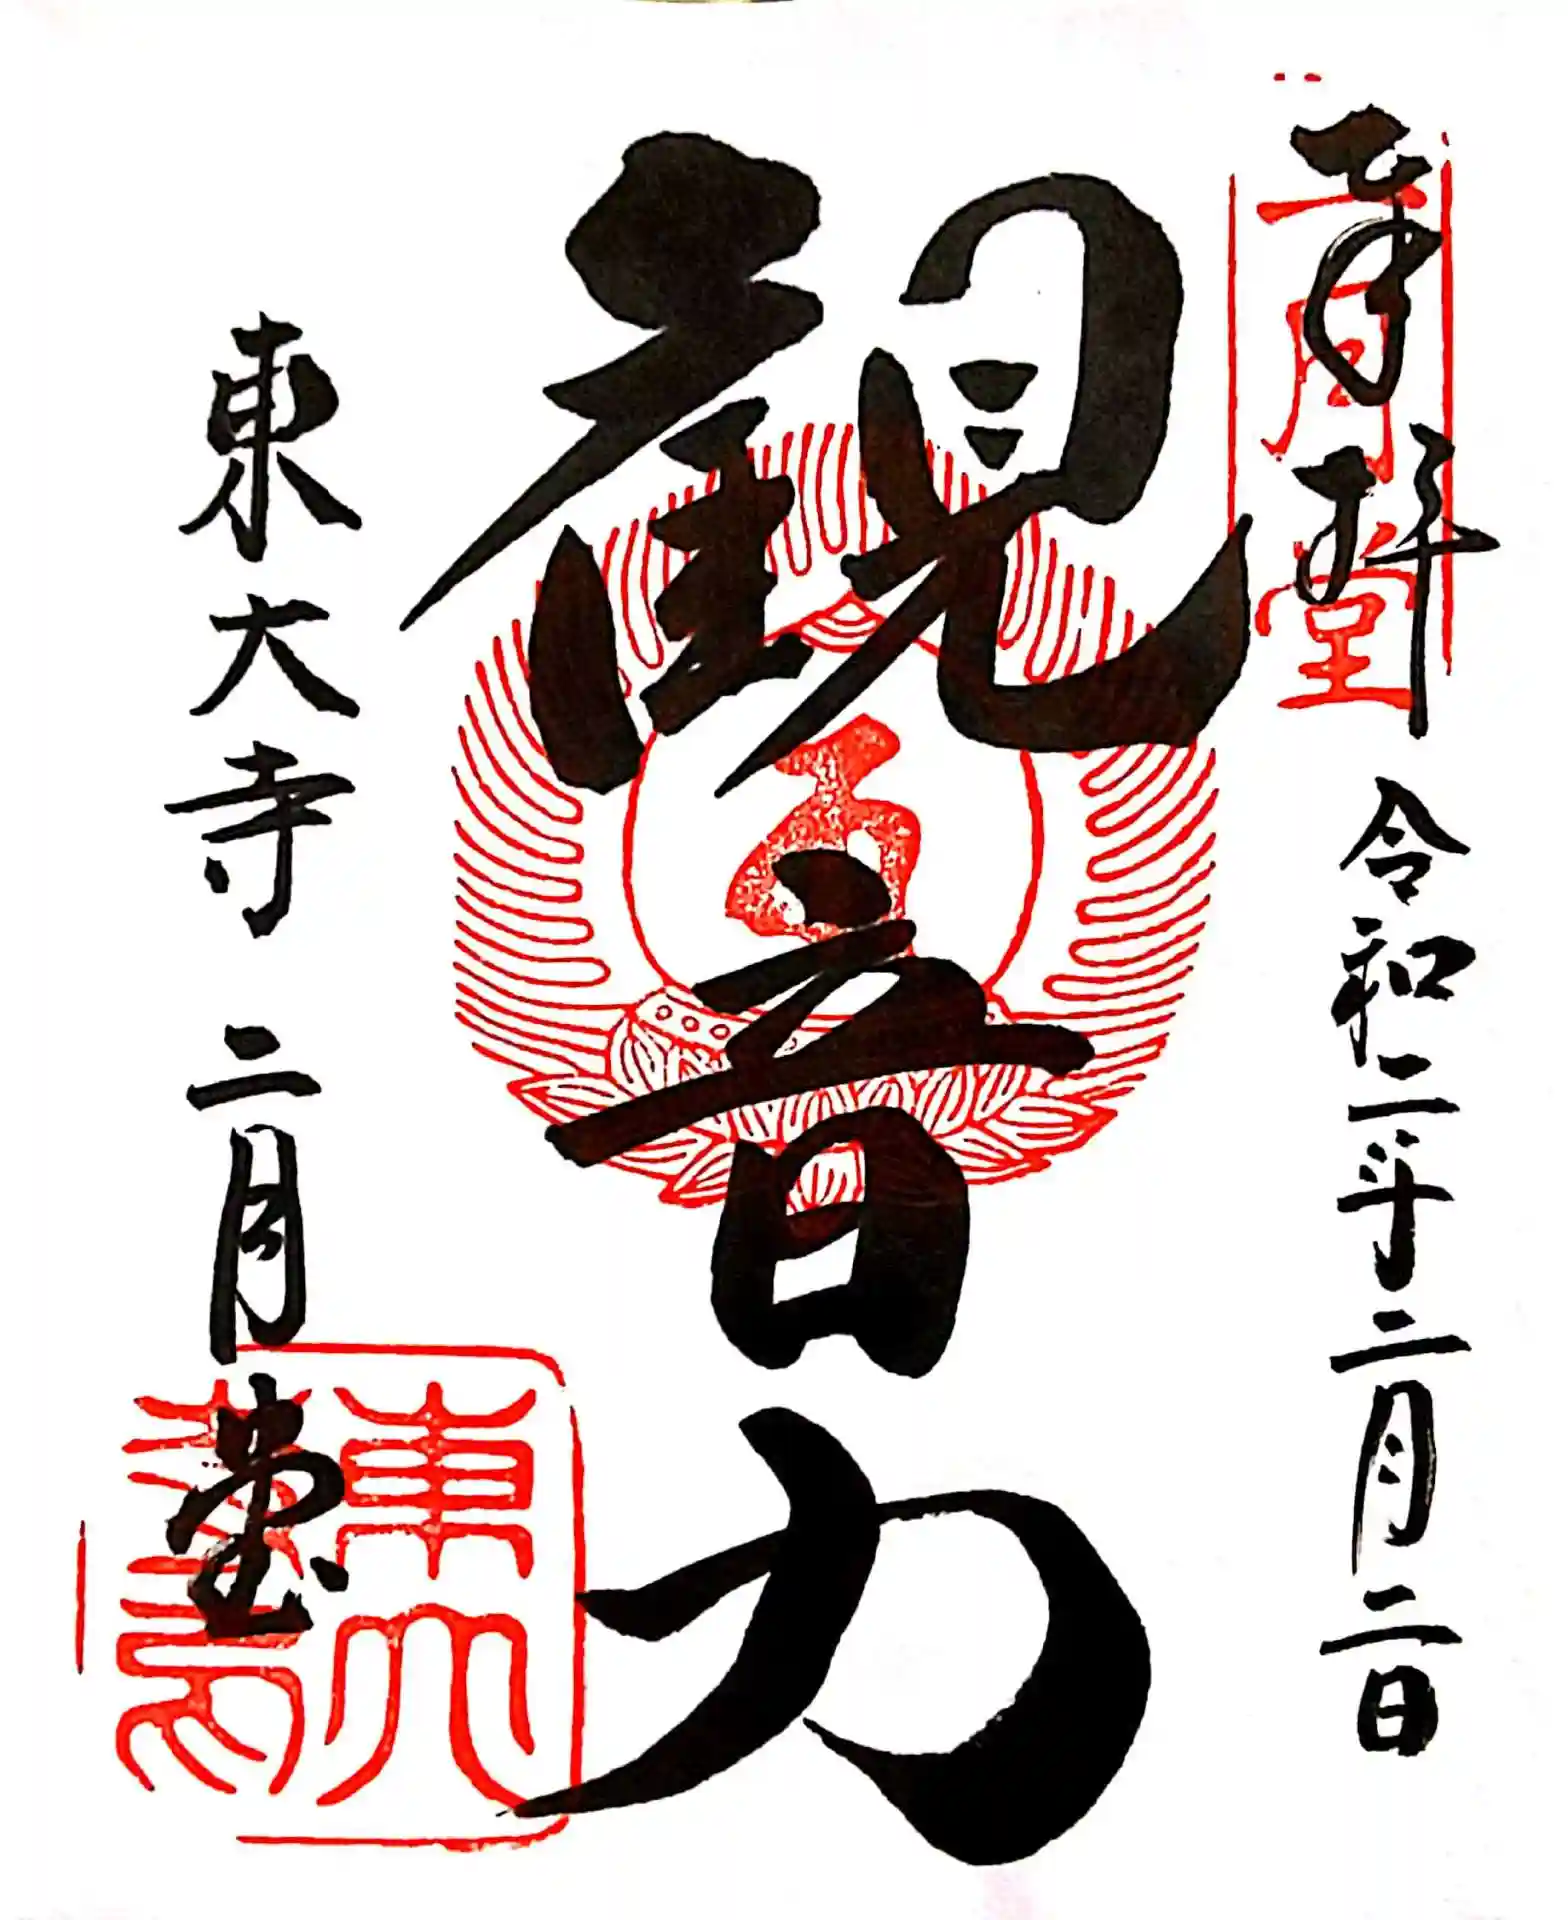 奉拝
令和二年二月二日
二月堂
觀音力
東大寺 二月堂
東大